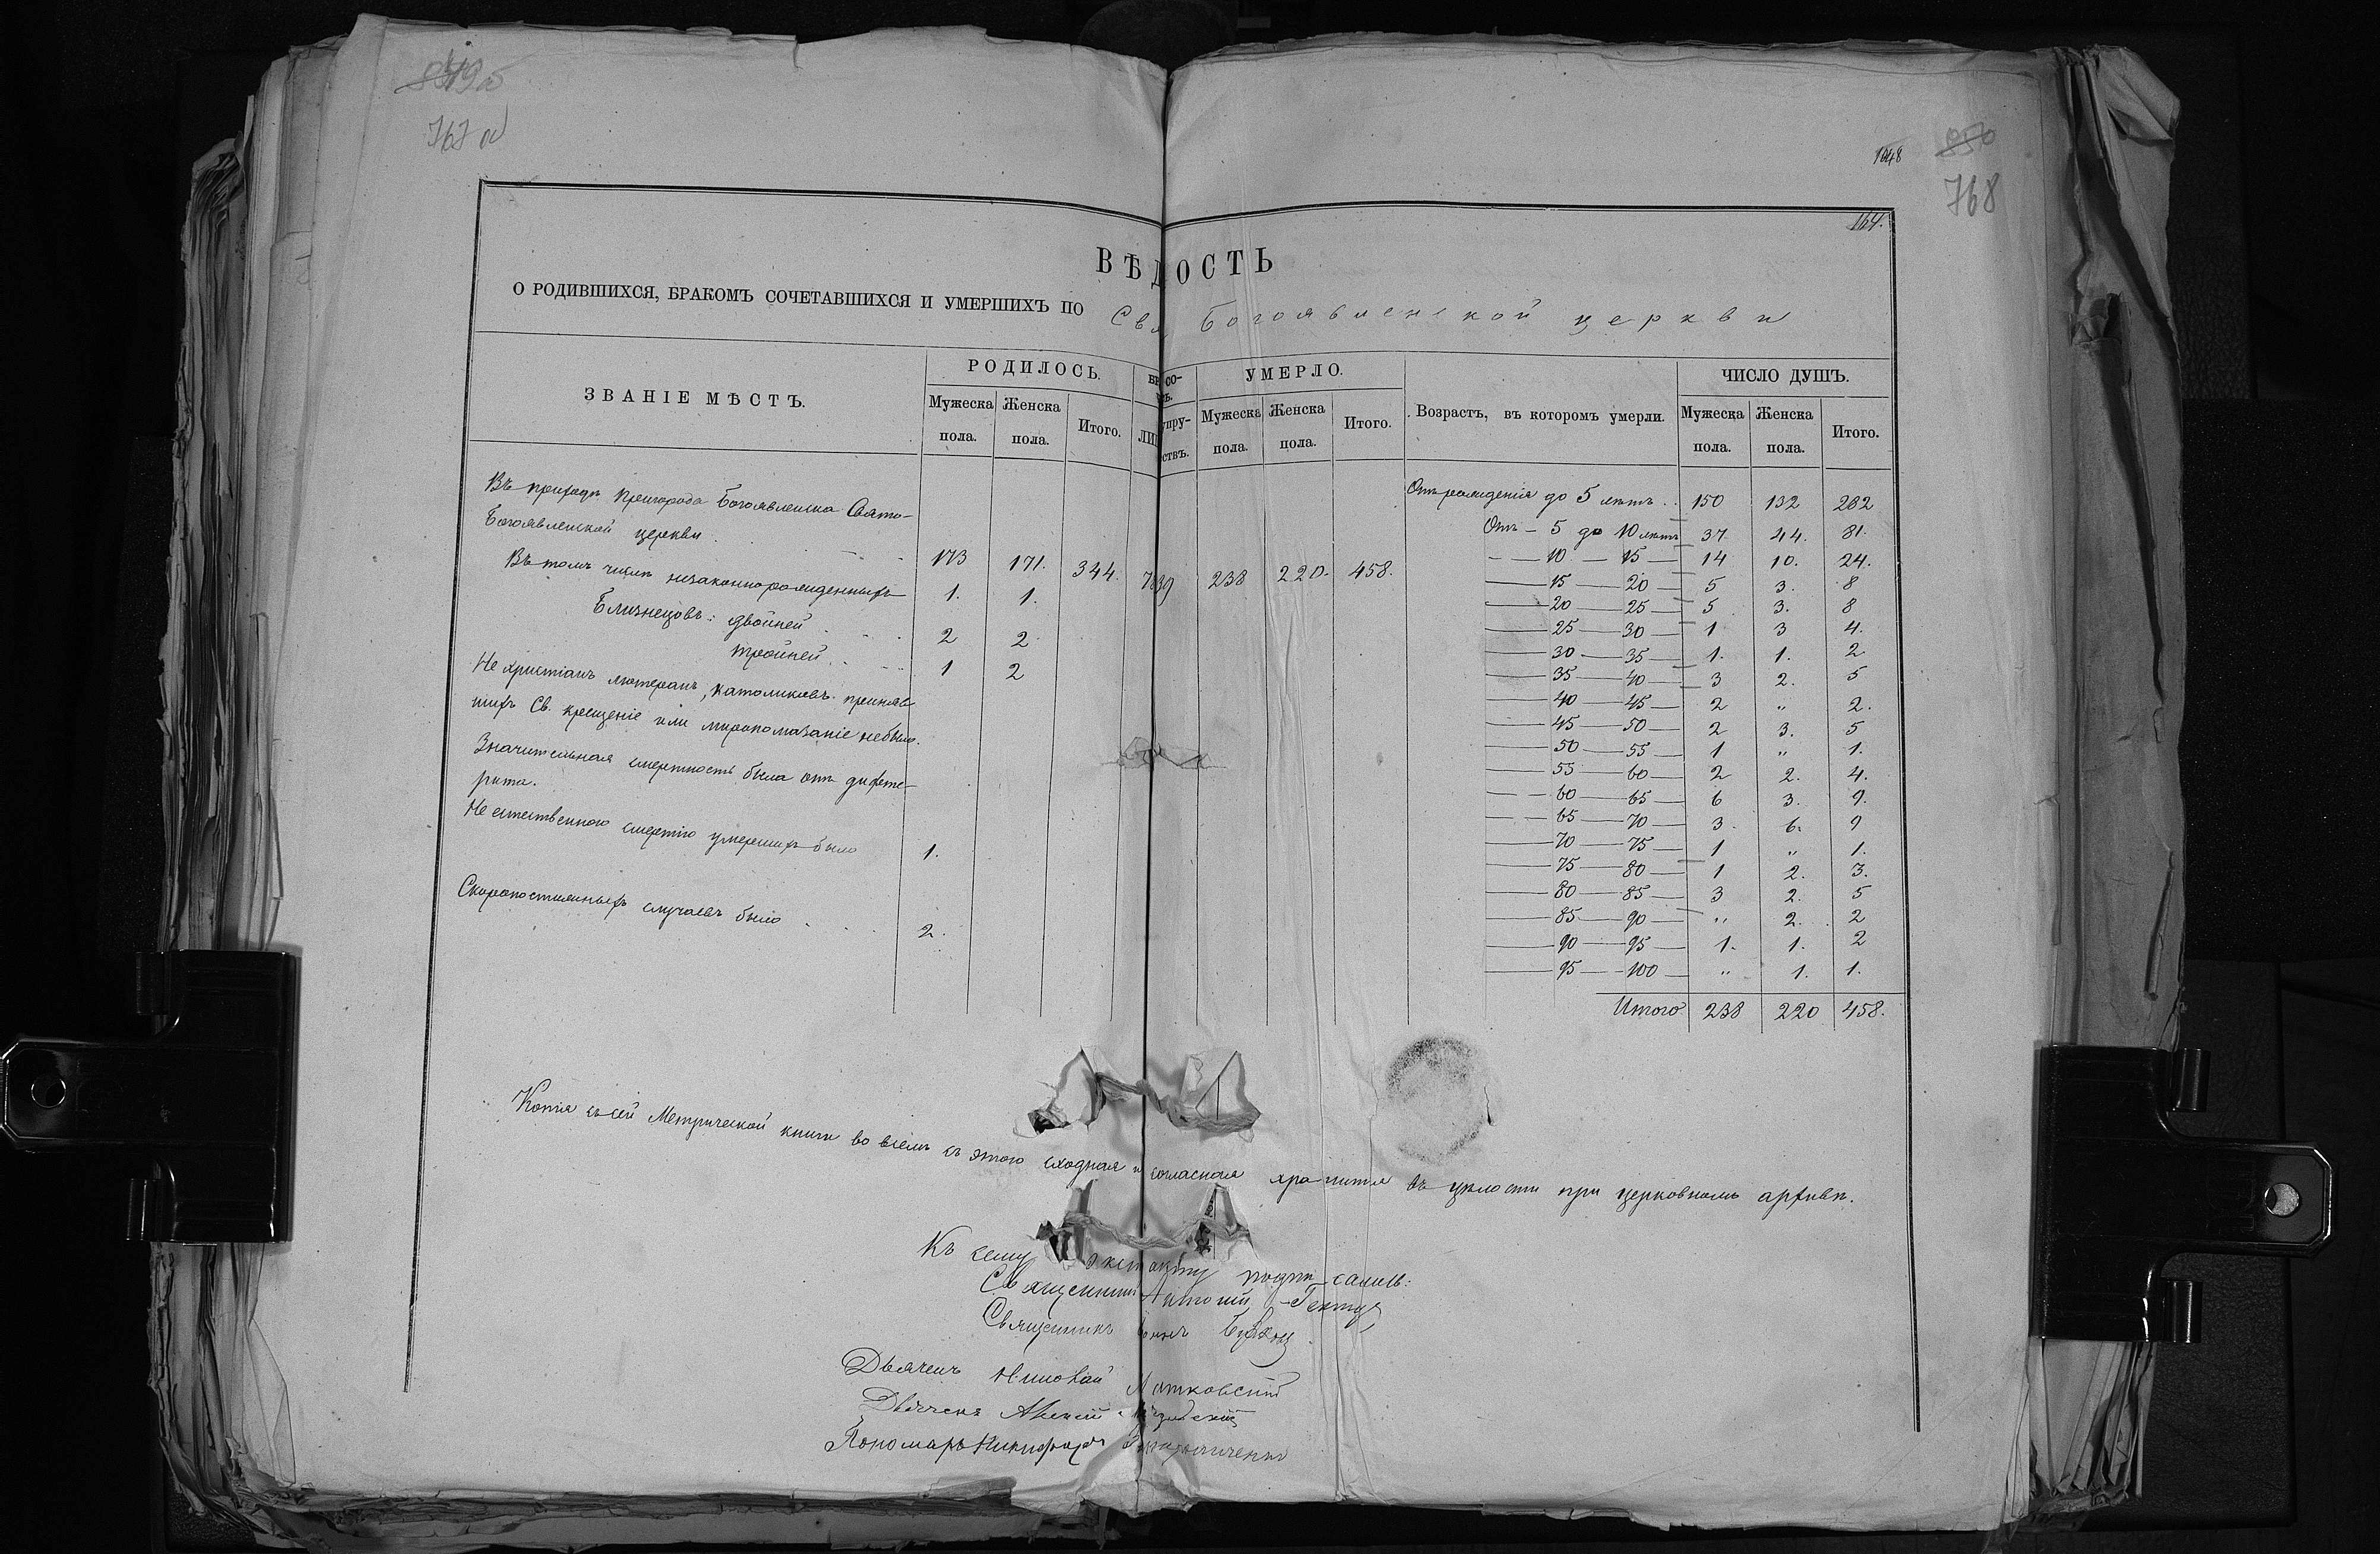 849 об
767 об
1048
850
768
164.
ВѢДОСТЬ
О РОДИВШИХСЯ, БРАКОМЪ СОЧЕТАВШИХСЯ И УМЕРШИХЪ ПО Богоявленской церкви
ЗВАНІЕ МѢСТЪ. РОДИЛОСЬ. УМЕРЛО. Возрастъ, въ которомъ умерли. ЧИСЛО ДУШЪ.
Мужеска пола. Женска пола. Итого. Мужеска пола. Женска пола. Итого. Мужеска пола. Женска пола. Итого.
Въ приходѣ пригорода Богоявленска Свято-
Богоявленской церкви 173 171. 344. 238 220. 458.
Въ томъ числѣ незаконнорожденныхъ 1. 1.
Близнецовъ: двойней 2 2
тройней 1 2
Не христіанъ лютеранъ, католиковъ приняв
шихъ Св. крещеніе или миропомазаніе небыло.
Значительная смертность была отъ дифте-
рита.
Не естественною смертію умершихъ было 1.
Скоропостижныхъ случаевъ было 2.
Отъ рожденія до 5 лѣтъ 150 132 282
Отъ - 5 до 10 лѣтъ 37 44. 81.
10 — 15 14 10. 24.
15 — 20 5 3. 8
20 — 25 5 3. 8
25 — 30 1 3 4.
30 — 35 1. 1. 2
35 — 40 3 2. 5
40 — 45 2 „ 2.
45 — 50 2 3. 5
50 — 55 1 „ 1.
55 — 60 2 2. 4.
60 — 65 6 3. 9.
65 — 70 3. 6. 9
70 — 75 1 „ 1.
75 — 80 1 2. 3.
80 — 85 3 2. 5
85 — 90 „ 2. 2
90 — 95 1. 1. 2
95 — 100 „ 1. 1.
Итого 238 220 458.
Копія съ сей Метрической книги во всемъ съ этого сходная и согласная хранится въ цѣлости при церковномъ архивѣ.
Къ сему экстракту подписались:
Священникъ Антоній
Священникъ
Дьячекъ Николай
Дьячекъ Алексій
Пономарь Никифоръ